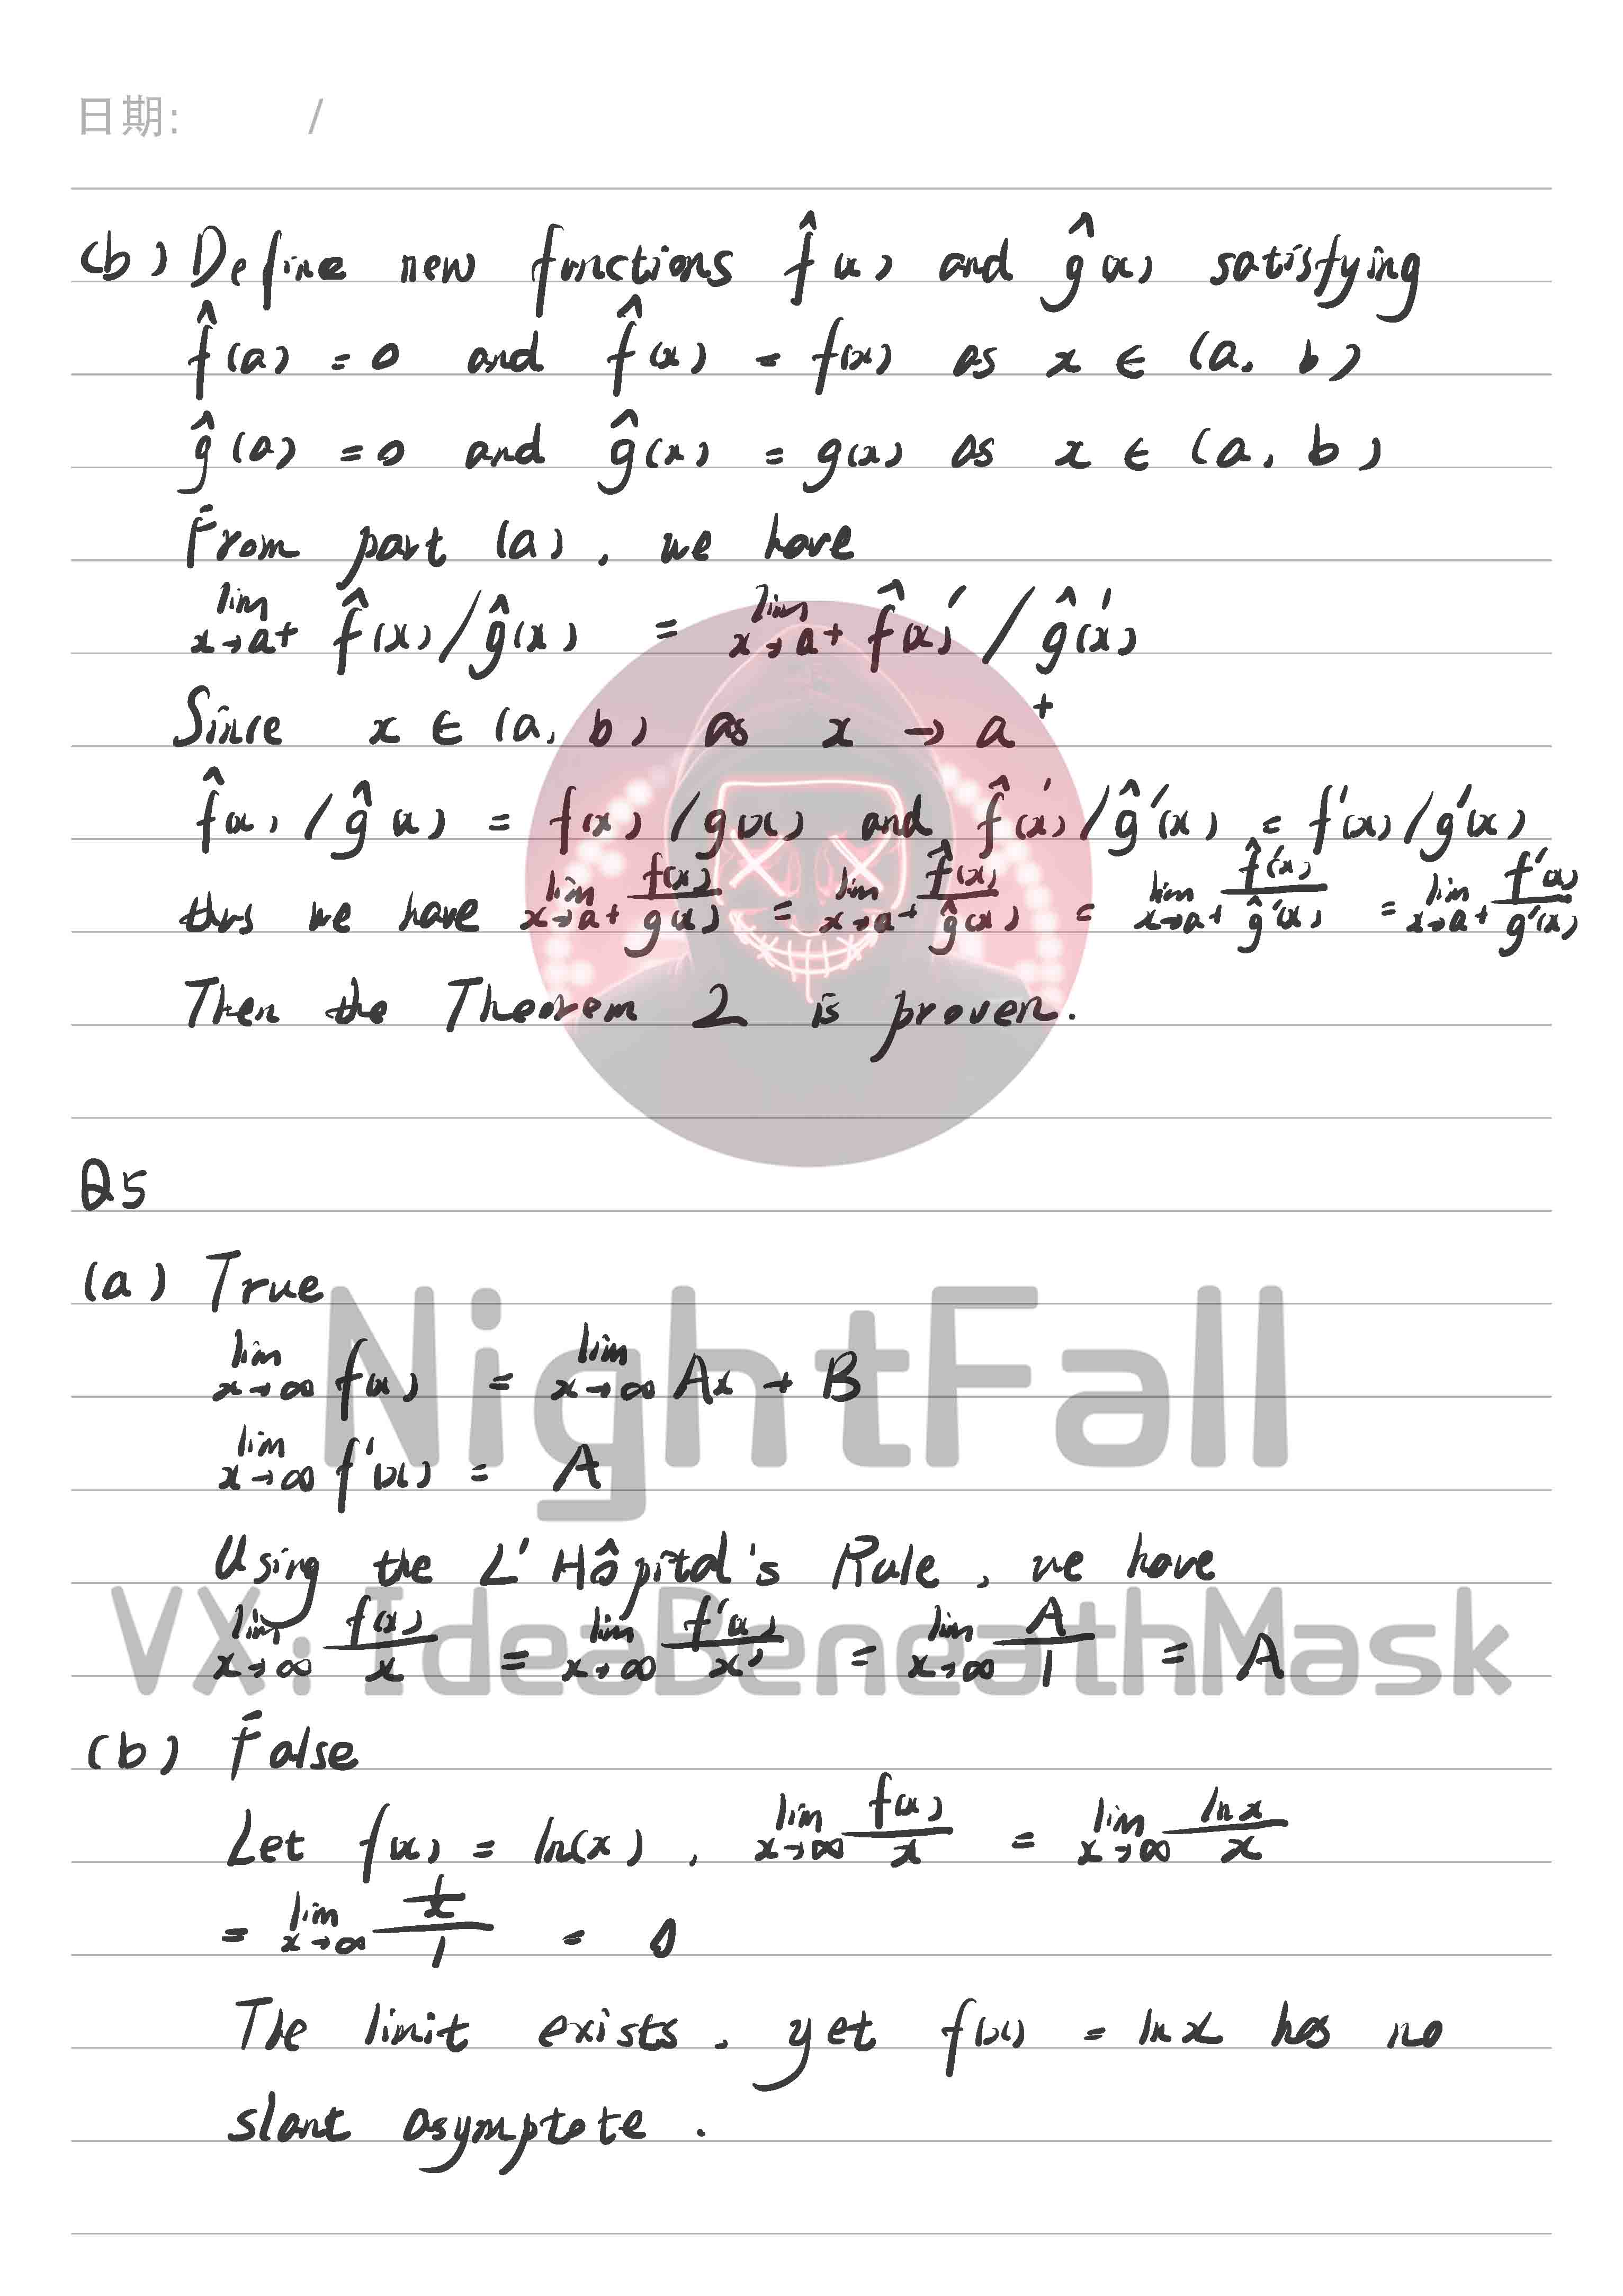 日期: /
(b) Define new functions f̂(x) and ĝ(x) satisfying
f̂(a) = 0 and f̂(x) = f(x) as x ∈ (a, b)
ĝ(a) = 0 and ĝ(x) = g(x) as x ∈ (a, b)
From part (a), we have
lim x→a+ f̂(x)/ĝ(x) = lim x→a+ f̂(x)′/ĝ′(x)
Since x ∈ (a, b) as x → a⁺
f̂(x)/ĝ(x) = f(x)/g(x) and f̂′(x)/ĝ′(x) = f′(x)/g′(x)
thus we have lim x→a+ f(x)/g(x) = lim x→a+ f̂(x)/ĝ(x) = lim x→a+ f̂′(x)/ĝ′(x) = lim x→a+ f′(x)/g′(x)
Then the Theorem 2 is proven.
Q5
(a) True
NightFall
lim x→∞ f(x) = lim x→∞ Ax + B
lim x→∞ f′(x) = A
Using the L'Hôpital's Rule, we have
VX: IdeaBeneathMask
lim x→∞ f(x)/x = lim x→∞ f′(x)/x′ = lim x→∞ A/1 = A
(b) False
Let f(x) = ln(x), lim x→∞ f(x)/x = lim x→∞ ln x/x
= lim x→∞ (1/x)/1 = 0
The limit exists. yet f(x) = ln x has no
slant asymptote.